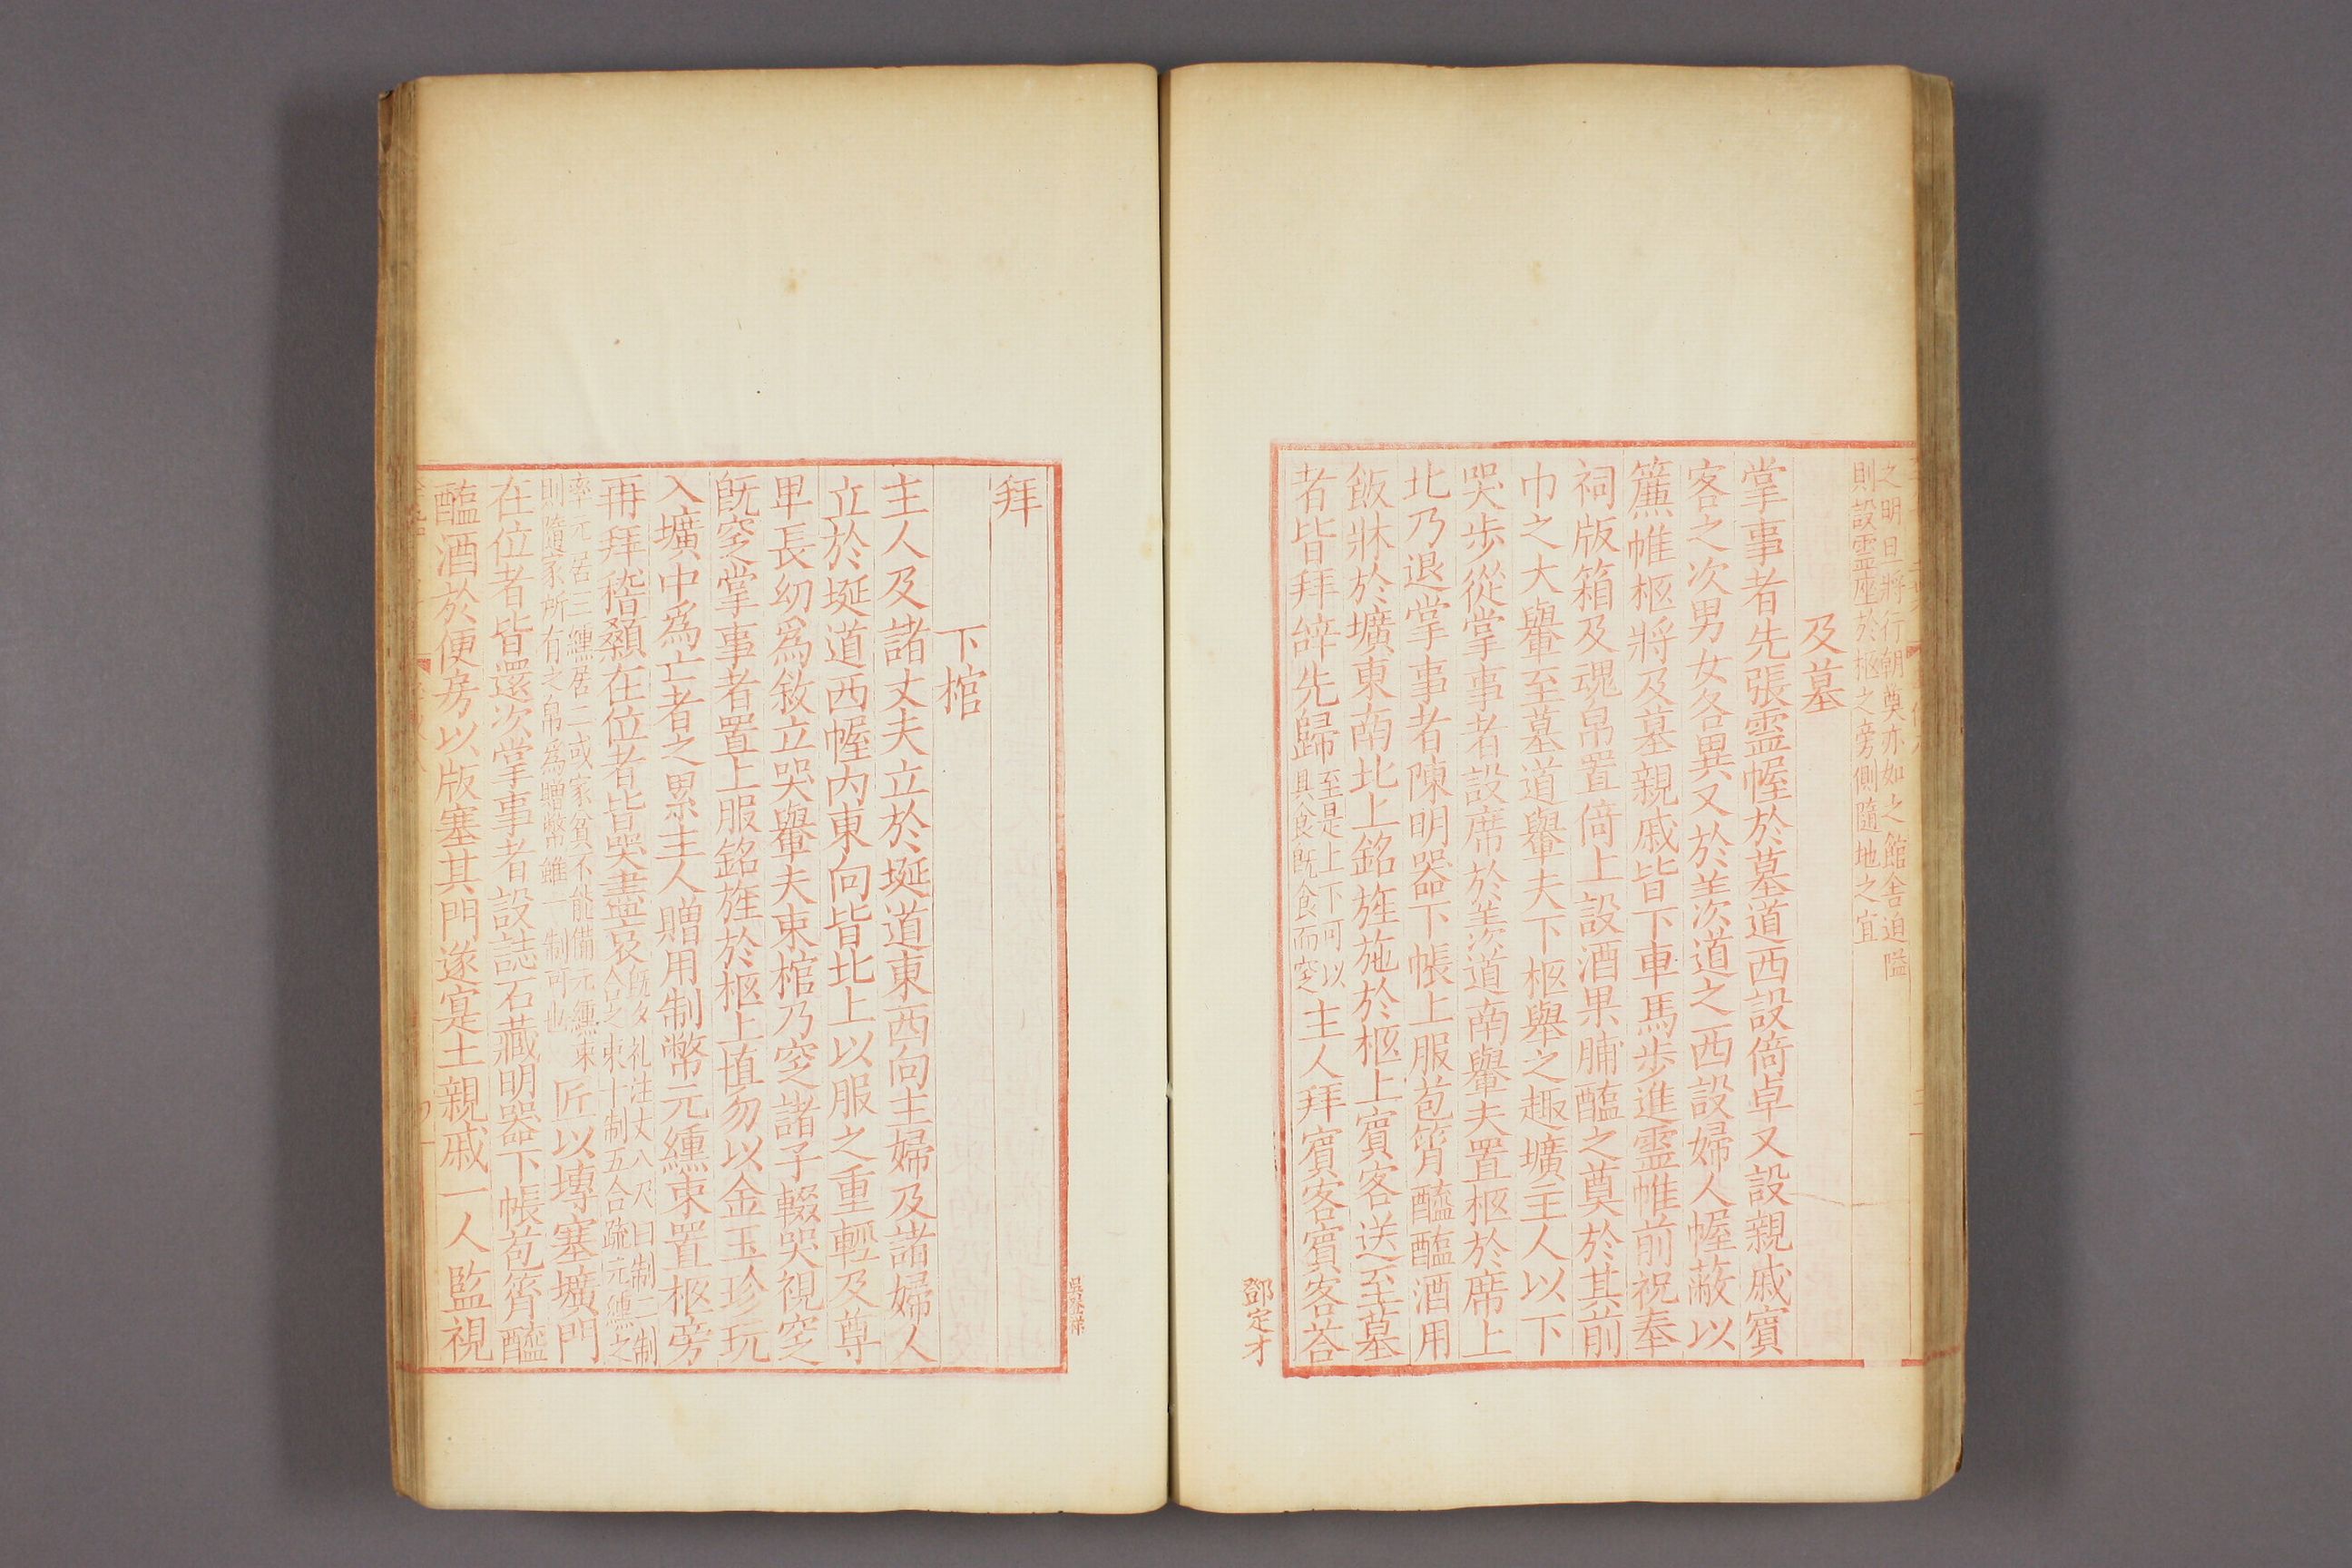 之明旦將行朝奠亦如之館舍迫隘
則設靈座於柩之旁側隨地之宜
及墓
掌事者先張靈幄於墓道西設倚卓又設親戚賓
客之次男女各異又於羡道之西設婦人幄蔽以
簾帷柩將及墓親戚皆下車馬步進靈帷前祝奉
祠版箱及魂帛置倚上設酒果脯醢之奠於其前
巾之大轝至墓道轝夫下柩舉之趣壙主人以下
哭步從掌事者設席於羡道南轝夫置柩於席上
北乃退掌事者陳明器下帳上服苞筲醯醢酒用
飯牀於壙東南北上銘旌施於柩上賓客送至墓
者皆拜辤先歸至是上下可以具食既食而窆主人拜賓客賓客荅
鄧定才
吳發祥
拜
下棺
主人及諸丈夫立於埏道東西向主婦及諸婦人
立於埏道西幄内東向皆北上以服之重輕及尊
卑長幼為敘立哭轝夫束棺乃窆諸子輟哭視窆
既窆掌事者置上服銘旌於柩上慎勿以金玉珍玩
入壙中為亡者之累主人贈用制幣元纁束置柩旁
再拜稽顙在位者皆哭盡哀既夕礼注丈八尺曰制二制合之束十制五合疏元纁之
率元居三纁居二或家貧不能備元纁束則隨家所有之帛為贈幣雖一制可也匠以塼塞壙門
在位者皆還次掌事者設誌石藏明器下帳苞筲醯
醢酒於便房以版塞其門遂寔土親戚一人監視